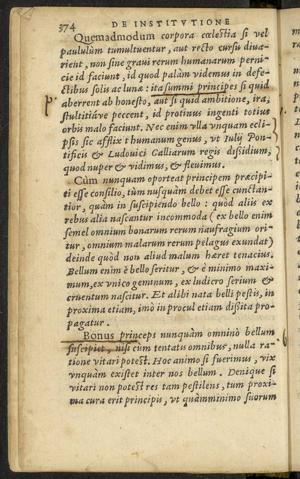 374
DE INSTITVTIONE
Quemadmodum corpora cœlestia si vel
paululùm tumultuentur, aut recto cursu diua-
rient, non sine graui rerum humanarum perni-
cie id faciunt, id quod palàm videmus in defe-
ctibus solis ac lunæ: ita summi principes si quid
aberrent ab honesto, aut si quid ambitione, ira,
stultitiáve peccent, id protinus ingenti totius
orbis malo faciunt. Nec enim vlla vnquam ecli-
psis sic afflixit humanum genus, vt Iulij Pon-
tificis & Ludouici Galliarum regis dissidium,
quod nuper & vidimus, & fleuimus.
Cùm nunquam oporteat principem præcipi-
ti esse consilio, tùm nusquàm debet esse cunctan-
tior, quàm in suscipiendo bello: quòd aliis ex
rebus alia nascantur incommoda (ex bello enim
semel omnium bonarum rerum naufragium ori-
tur, omnium malarum rerum pelagus exundat)
deinde quòd non aliud malum hæret tenacius.
Bellum enim è bello seritur, & è minimo maxi-
mum, ex vnico geminum, ex ludicro serium &
cruentum nascitur. Et alibi nata belli pestis, in
proxima etiam, imò in procul etiam dissita pro-
pagatur.
Bonus princeps nunquàm omninò bellum
suscipiet, nisi cùm tentatis omnibus, nulla ra-
tione vitari potest. Hoc animo si fuerimus, vix
vnquàm existet inter nos bellum. Denique si
vitari non potest res tam pestilens, tum proxi-
ma cura erit principis, vt quàm minimo suorum